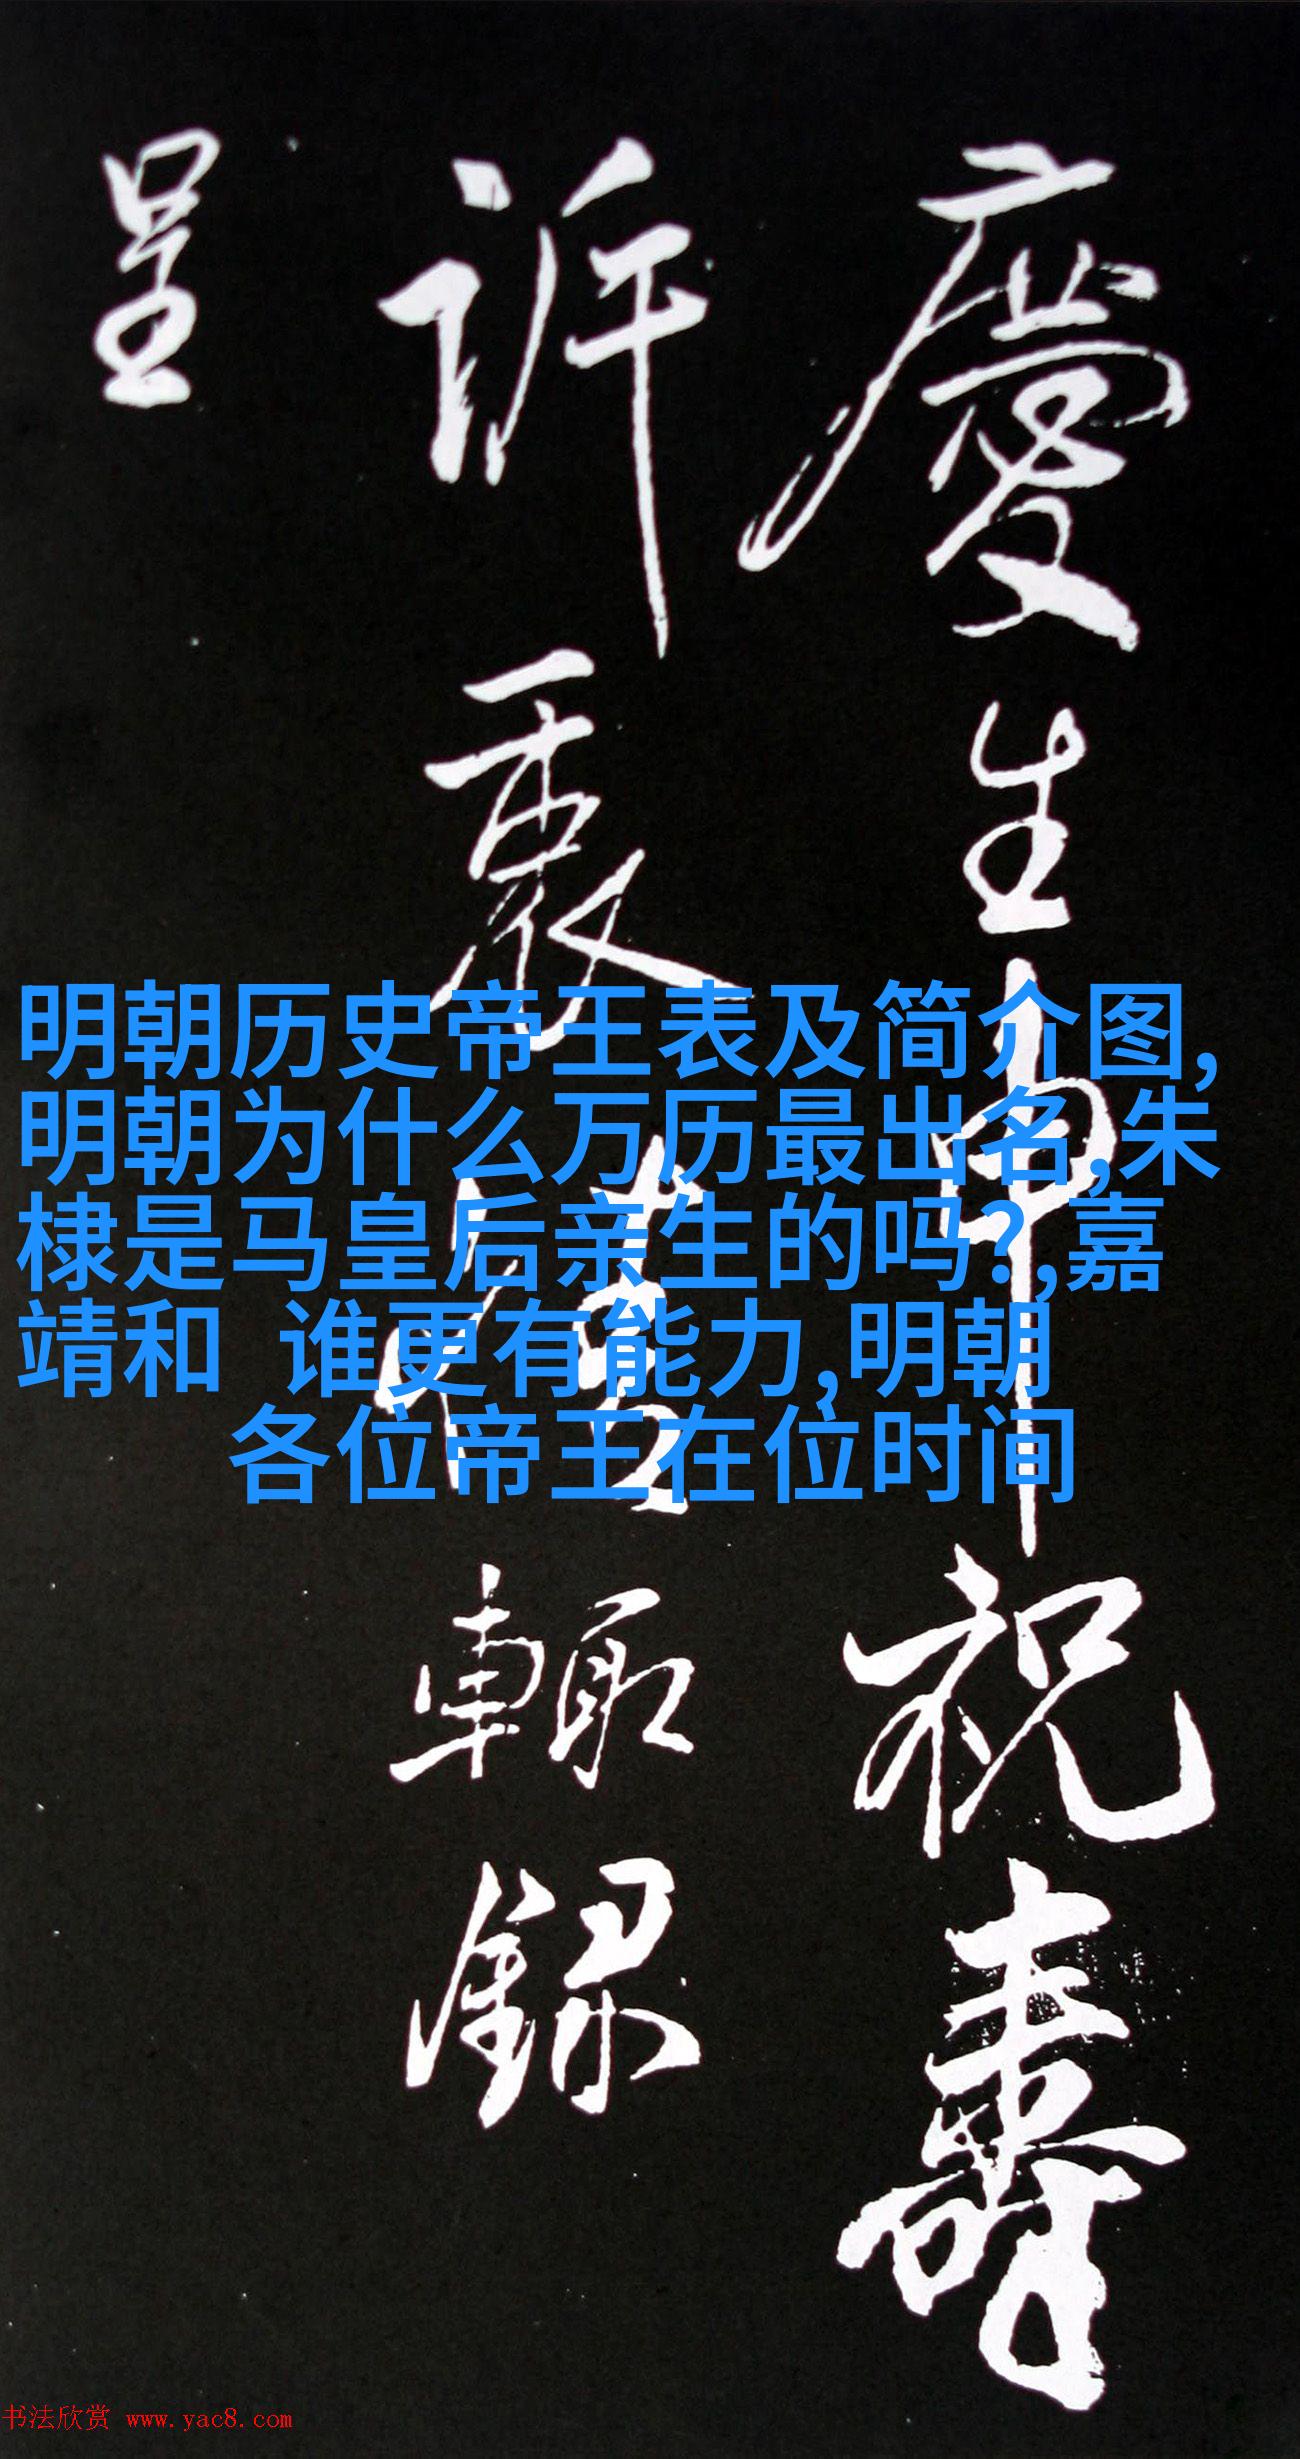 慶生申祝壽
訴衷情輙錄
呈
明朝历史帝王表及简介图,
明朝为什么万历最出名,朱
棣是马皇后亲生的吗?,嘉
靖和 谁更有能力,明朝
各位帝王在位时间
书法欣赏 www.yac8.com